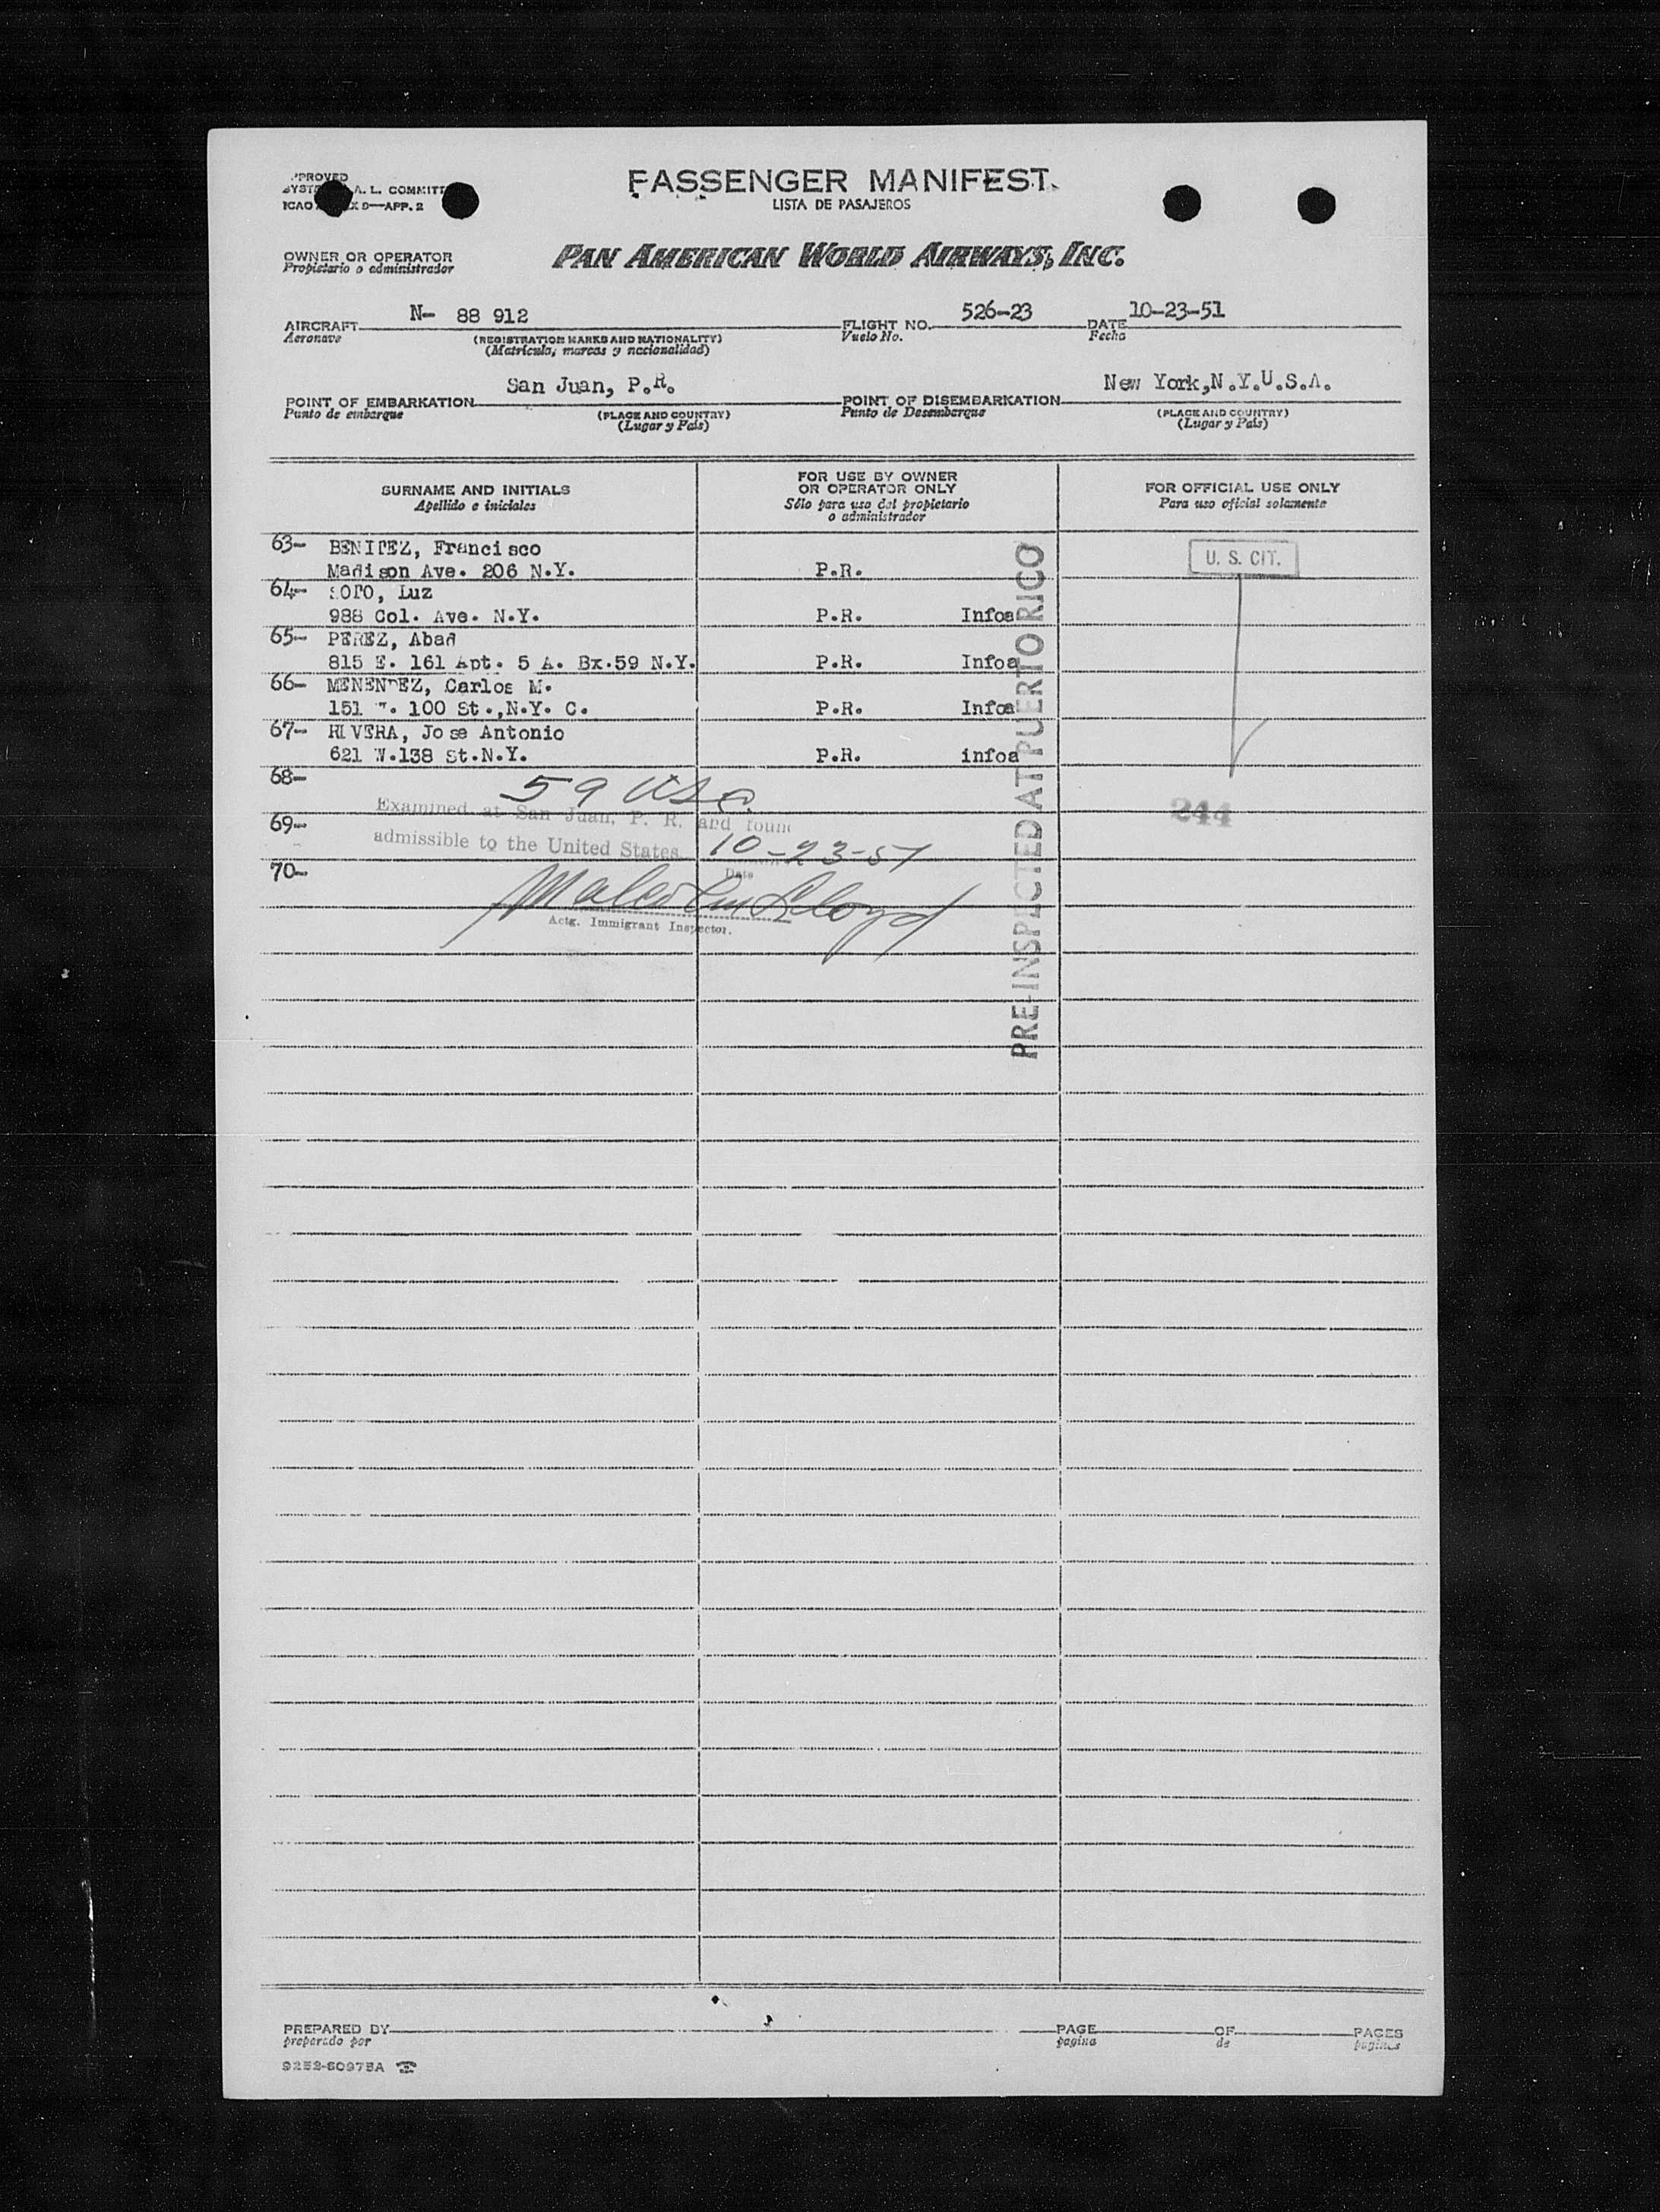 PASSENGER MANIFEST
LISTA DE PASAJEROS
PAN AMERICAN WORLD AIRWAYS, INC.
OWNER OR OPERATOR
Propietario o administrador
N- 88 912 526-23 10-23-51
AIRCRAFT FLIGHT NO. DATE
Aeronave (REGISTRATION MARKS AND NATIONALITY) Vuelo No. Fecha
(Matrícula, marcas y nacionalidad)
San Juan, P.R. New York,N.Y.U.S.A.
POINT OF EMBARKATION POINT OF DISEMBARKATION
Punto de embarque (PLACE AND COUNTRY) Punto de Desembarque (PLACE AND COUNTRY)
(Lugar y País) (Lugar y País)
SURNAME AND INITIALS
Apellido e iniciales
FOR USE BY OWNER
OR OPERATOR ONLY
Sólo para uso del propietario
o administrador
FOR OFFICIAL USE ONLY
Para uso oficial solamente
63- BENITEZ, Francisco
Madison Ave. 206 N.Y. P.R.
U. S. CIT.
64- SOTO, Luz
988 Col. Ave. N.Y. P.R. Infoa
65- PEREZ, Abad
815 E. 161 Apt. 5 A. Bx.59 N.Y. P.R. Infoa
66- MENENDEZ, Carlos M.
151 W. 100 St.,N.Y. C. P.R. Infoa
67- RIVERA, Jose Antonio
621 W.138 St.N.Y. P.R. infoa
68-
59 USC
Examined at San Juan, P. R. and foun
244
69-
admissible to the United States 10-23-51
Date
70-
Malcolm Lloyd
Actg. Immigrant Inspector.
PRE-INSPECTED AT PUERTO RICO
PREPARED BY PAGE OF PAGES
preparado por pagina de paginas
9252-60975A